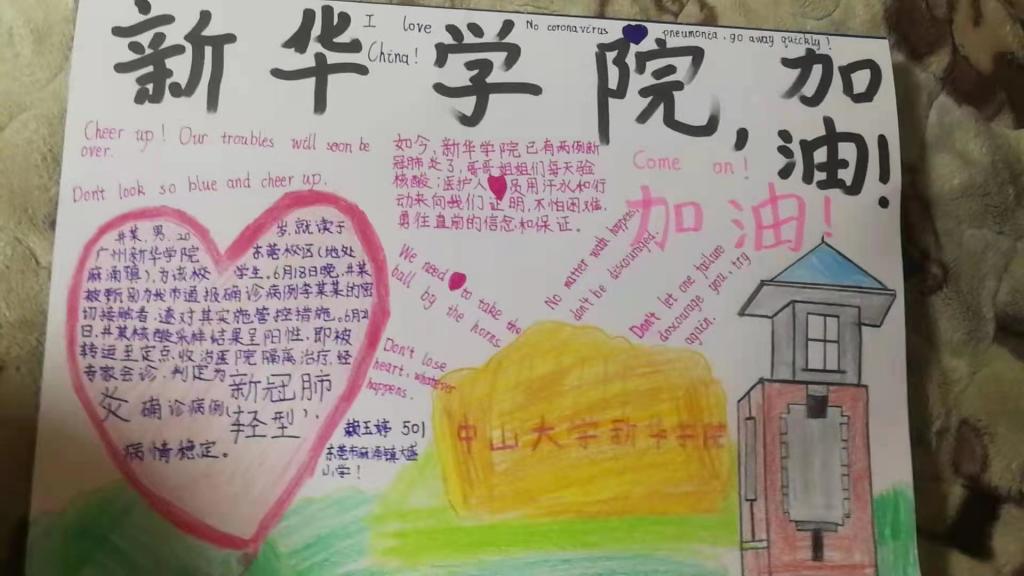 新华学院,加
油!
I love
China!
No coronavirus pneumonia, go away quickly!
Cheer up! Our troubles will soon be
over.
Don't look so blue and cheer up.
如今,新华学院已有两例新
冠肺炎了,哥哥姐姐们每天验
核酸;医护人员用汗水和行
动来向我们证明,不怕困难,
勇往直前的信念和保证。
Come on!
加油!
井某,男,20岁,就读于
广州新华学院东莞校区(地处
麻涌镇),为该校学生。6月18日晚,井某
被甄别为我市通报确诊病例李某某的密
切接触者,遂对其实施管控措施。6月21
日,井某核酸采样结果呈阳性,即被
转运至定点收治医院隔离治疗,经
专家会诊,判定为新冠肺
炎确诊病例(轻型),
病情稳定。
We need to take the
ball by the horns.
No matter wath happens,
don't be discouraged.
Don't let one failure
doscourage you, try
again.
Don't lose
heart, whatever
happens.
玉婷 501
东莞市麻涌镇大盛
小学!
中山大学新华学院